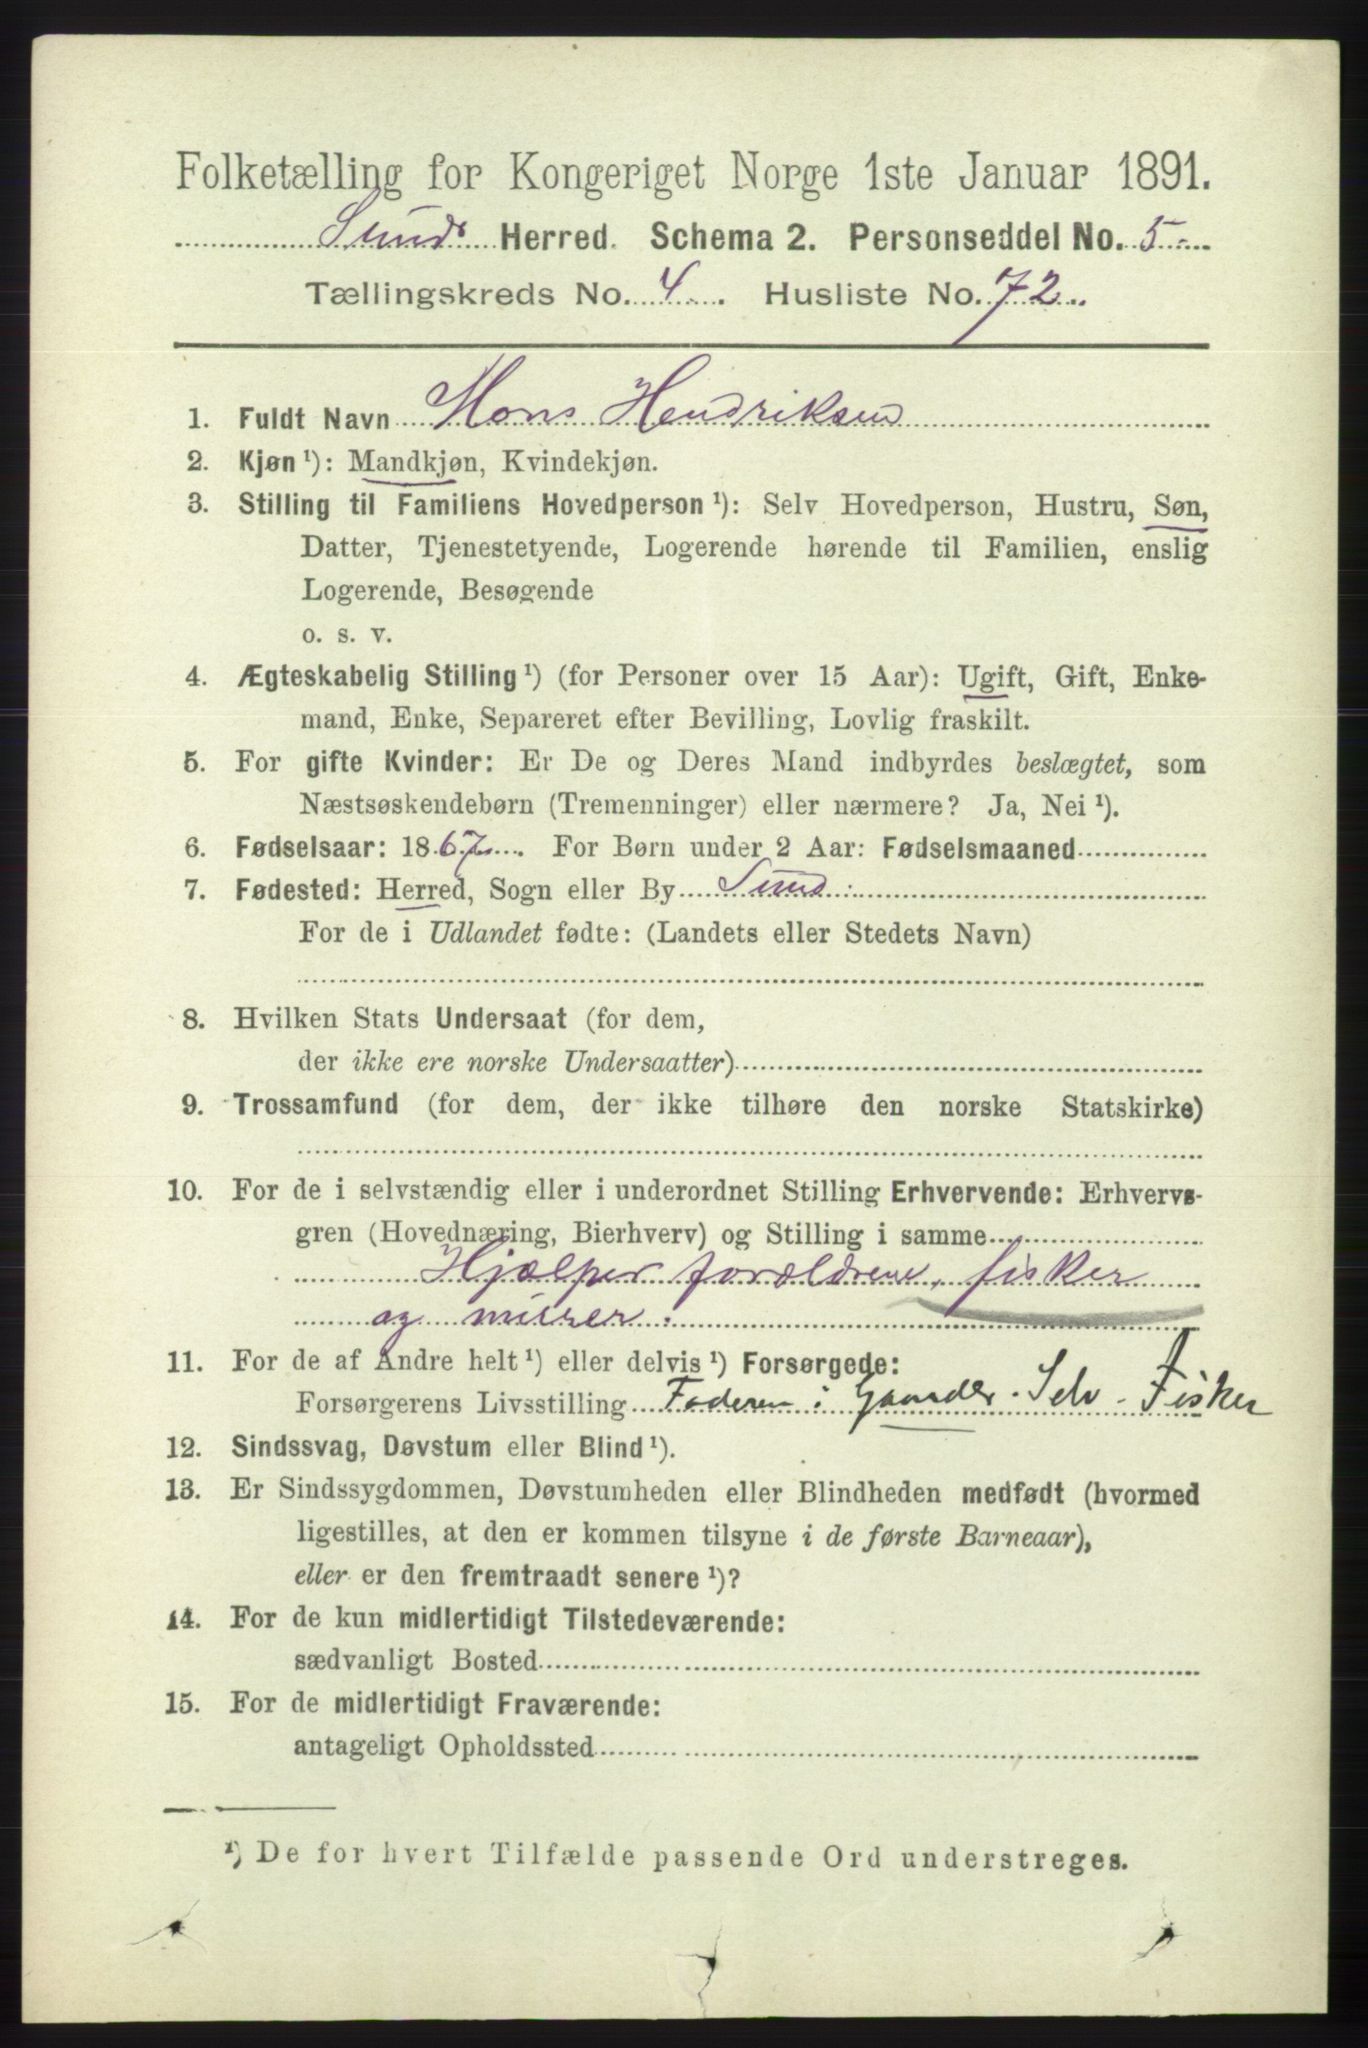 Folketælling for Kongeriget Norge 1ste Januar 1891.
Sunds Herred. Schema 2. Personseddel No. 5
Tællingskreds No. 4. Husliste No. 72.
1. Fuldt Navn Mons Hendriksen
2. Kjøn ¹): Mandkjøn, Kvindekjøn.
3. Stilling til Familiens Hovedperson ¹): Selv Hovedperson, Hustru, Søn,
Datter, Tjenestetyende, Logerende hørende til Familien, enslig
Logerende, Besøgende
o. s. v.
4. Ægteskabelig Stilling ¹) (for Personer over 15 Aar): Ugift, Gift, Enke-
mand, Enke, Separeret efter Bevilling, Lovlig fraskilt.
5. For gifte Kvinder: Er De og Deres Mand indbyrdes beslægtet, som
Næstsøskendebørn (Tremenninger) eller nærmere? Ja, Nei ¹).
6. Fødselsaar: 1867. For Børn under 2 Aar: Fødselsmaaned
7. Fødested: Herred, Sogn eller By Sund.
For de i Udlandet fødte: (Landets eller Stedets Navn)
8. Hvilken Stats Undersaat (for dem,
der ikke ere norske Undersaatter)
9. Trossamfund (for dem, der ikke tilhøre den norske Statskirke)
10. For de i selvstændig eller i underordnet Stilling Erhvervende: Erhvervs-
gren (Hovednæring, Bierhverv) og Stilling i samme
Hjælper forældrene, fisker
og murer.
11. For de af Andre helt ¹) eller delvis ¹) Forsørgede:
Forsørgerens Livsstilling Faderen: Gaardbr. Selv - Fisker
12. Sindssvag, Døvstum eller Blind ¹).
13. Er Sindssygdommen, Døvstumheden eller Blindheden medfødt (hvormed
ligestilles, at den er kommen tilsyne i de første Barneaar),
eller er den fremtraadt senere ¹)?
14. For de kun midlertidigt Tilstedeværende:
sædvanligt Bosted
15. For de midlertidigt Fraværende:
antageligt Opholdssted
¹) De for hvert Tilfælde passende Ord understreges.